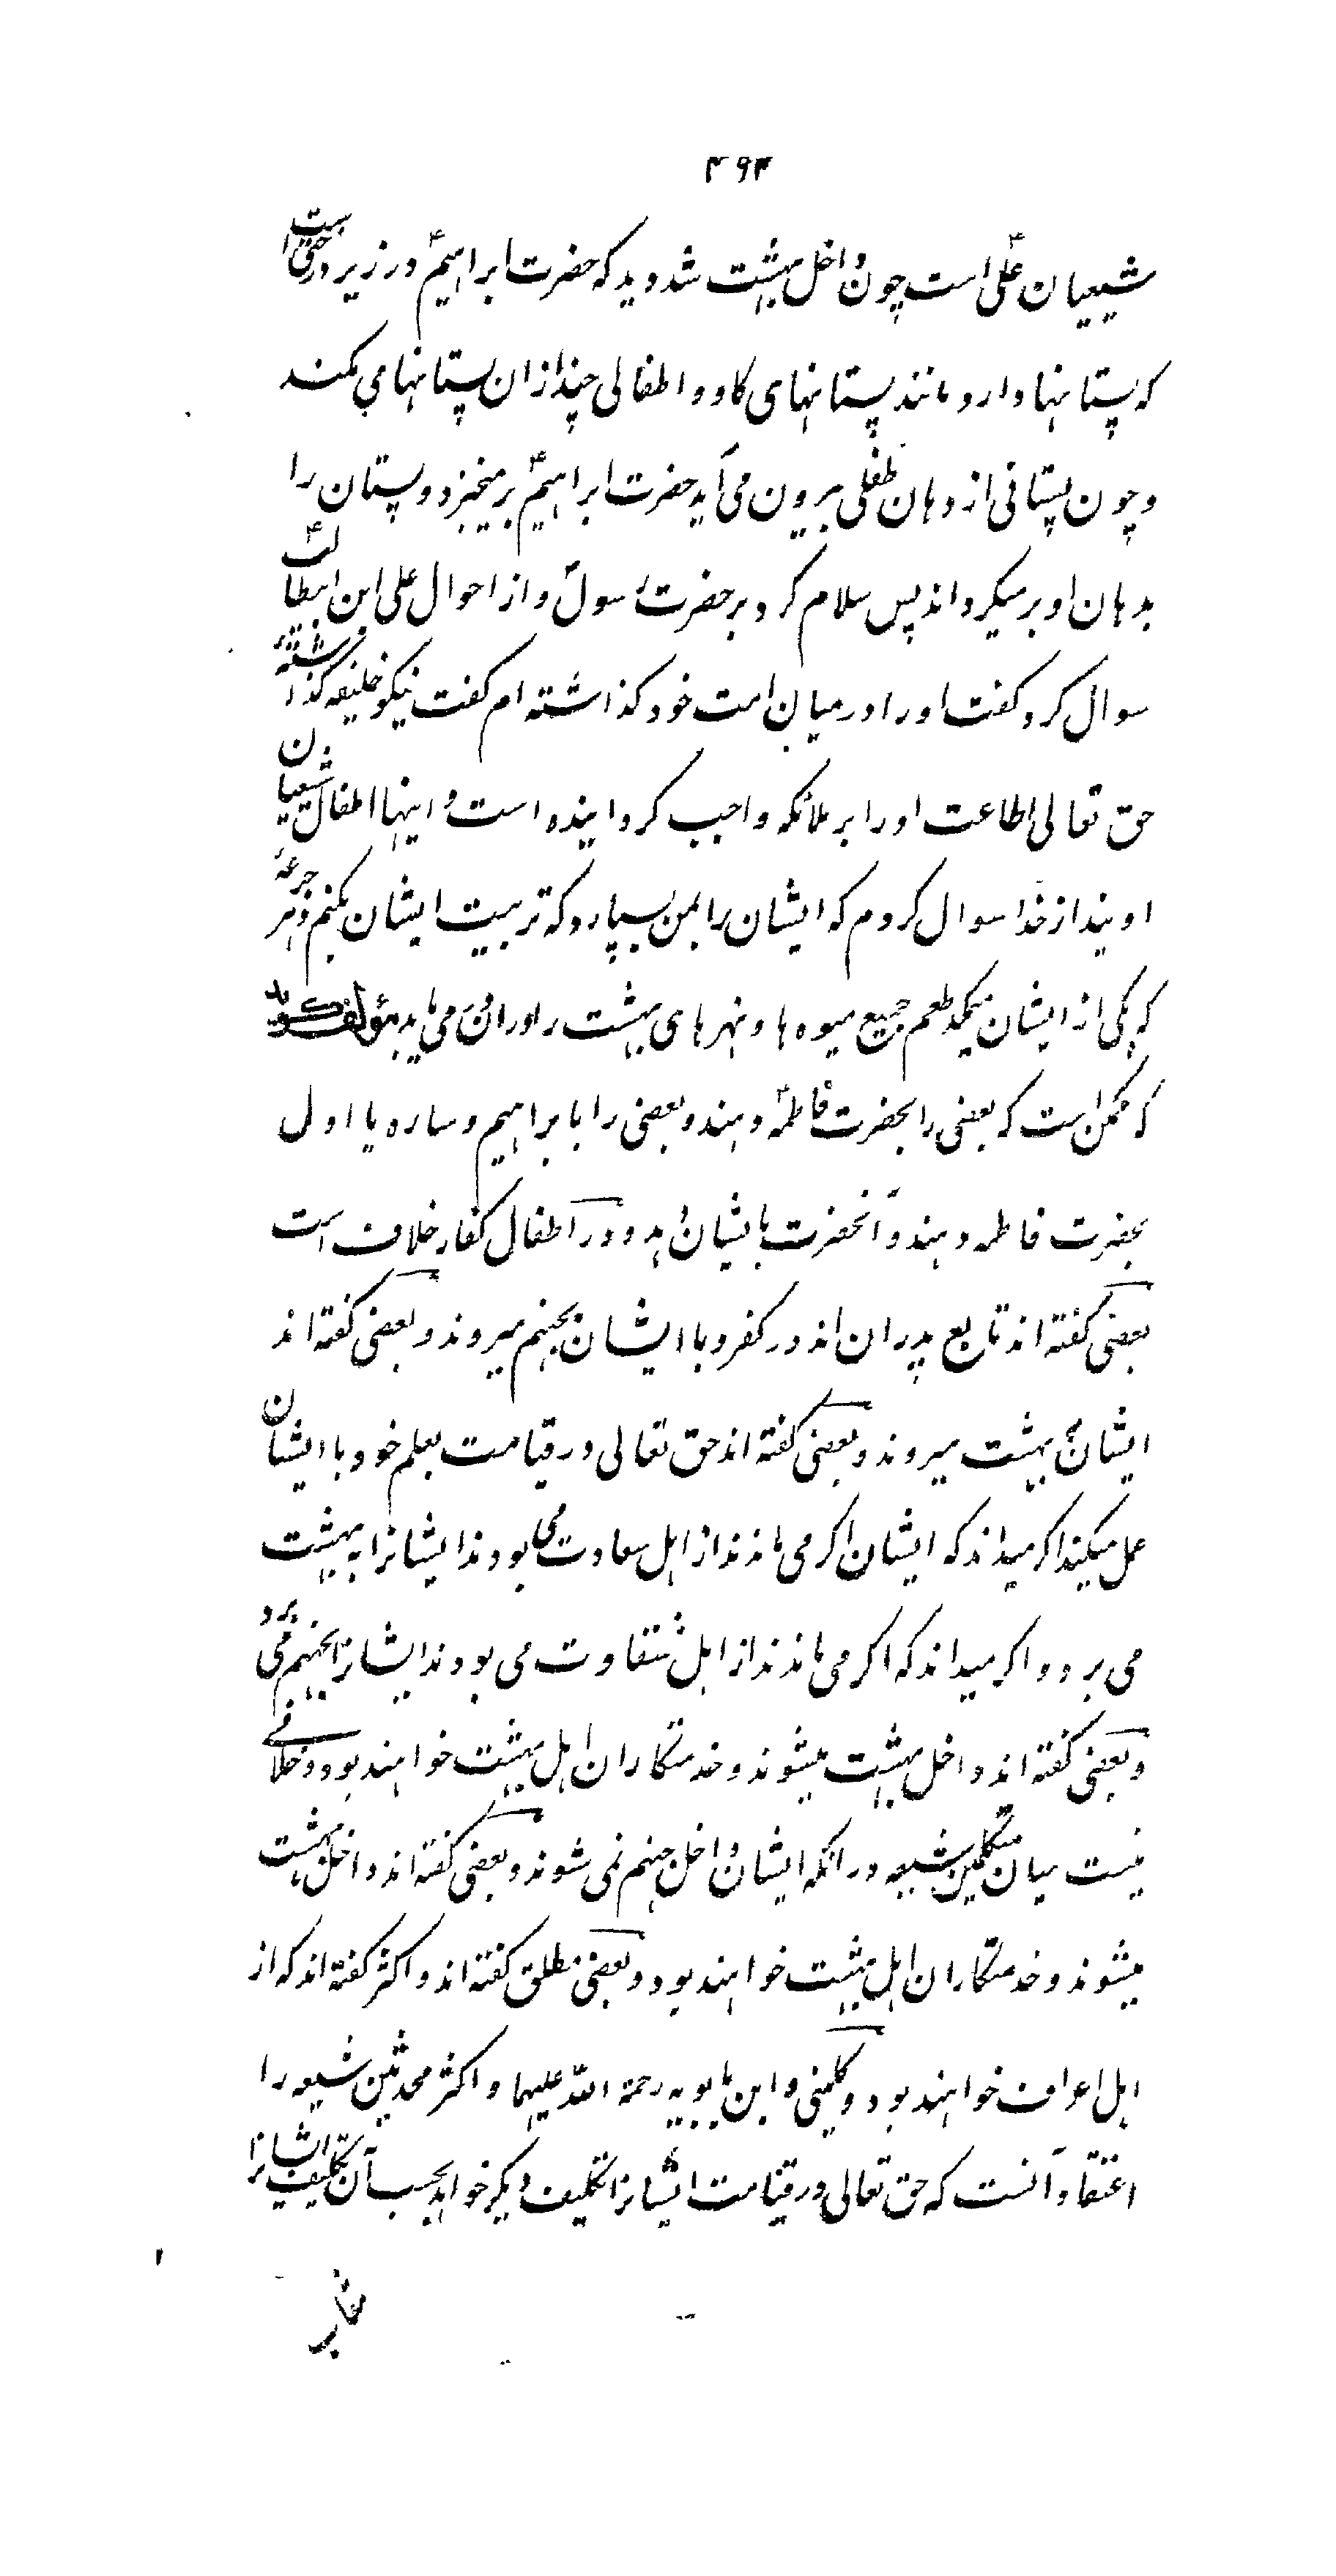 ۴۹۴
شیعیان علیؑ است چون داخل بهشت شد دید که حضرت ابراهیمؑ در زیر درختی است
که پستانها دارد مانند پستانهای کاو و اطفالی چند از ان پستانها می مکند
و چون پستانی از دهان طفلی بیرون می آید حضرت ابراهیمؑ بر میخیزد و پستان را
بدهان او بر میکرداند پس سلام کرد بر حضرت رسولؐ و از احوال علی ابن ابیطالبؑ
سوال کرد کفت او را در میان امت خود کذاشته ام کفت نیکو خلیفه کذاشتهٔ
حق تعالی اطاعت او را بر ملائکه واجب کردانیده است و اینها اطفال شیعیان
اویند از خدا سوال کردم که ایشان را بمن بسپارد که تربیت ایشان بکنم و هر جرعهٔ
که یکی از ایشان میمکد طعم جمیع میوه ها و نهرهای بهشت را در ان می یابد مؤلف کوید
که ممکن است که بعضی را بحضرت فاطمهؑ دهند و بعضی را بابراهیم و ساره یا اول
بحضرت فاطمه دهند و آنحضرت بایشان دهد و در اطفال کفار خلاف است
بعضی کفته اند تابع پدران اند در کفر و با ایشان بجهنم میروند و بعضی کفته اند
ایشان ببهشت میروند و بعضی کفته اند حق تعالی در قیامت بعلم خود با ایشان
عمل میکند اکر میداند که ایشان اکر می ماندند از اهل سعادت می بودند ایشانرا به بهشت
می برد و اکر میداند که اکر می ماندند از اهل شقاوت می بودند ایشانرا بجهنم می برد
و بعضی کفته اند داخل بهشت میشوند و خدمتکاران اهل بهشت خواهند بود و خلافی
نیست میان متکلمین شیعه در انکه ایشان داخل جهنم نمی شوند و بعضی کفته اند داخل بهشت
میشوند و خدمتکاران اهل بهشت خواهند بود و بعضی مطلق کفته اند و اکثر کفته اند که از
اهل اعراف خواهند بود و کلینی و ابن بابویه رحمة الله علیهما و اکثر محدثین شیعه را
اعتقاد آنست که حق تعالی در قیامت ایشانرا تکلیف دیکر خواهد بحسب آن تکلیف ایشانرا